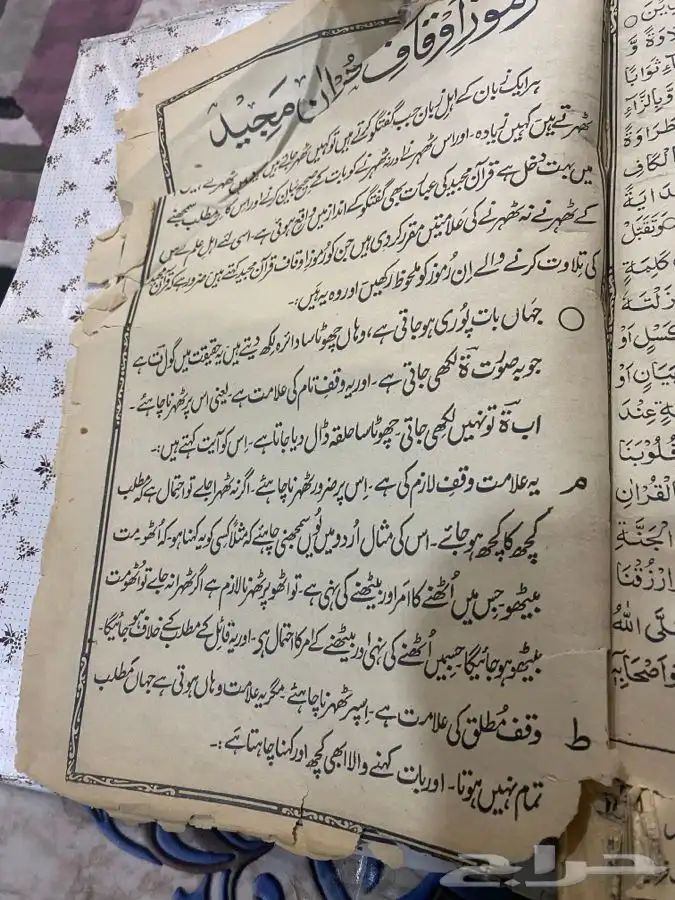 رموزِ اوقافِ قرآن مجید
ہر ایک زبان کے اہل زبان جب گفتگو کرتے ہیں تو کہیں ٹھہر جاتے ہیں کہیں نہیں
ٹھہرتے ہیں کہیں زیادہ۔ اور اس ٹھہرنے اور نہ ٹھہرنے کو بات کے صحیح بیان کرنے اور اس کا صحیح مطلب سمجھنے
میں بہت دخل ہے قرآن مجید کی عبارت بھی گفتگو کے انداز میں واقع ہوئی ہے۔ اسی لئے اہل علم نے اس
کے ٹھہرنے نہ ٹھہرنے کی علامتیں مقرر کر دی ہیں جن کو رموز اوقاف قرآن مجید کہتے ہیں ضرور ہے کہ قرآن مجید
کی تلاوت کرنے والے ان رموز کو ملحوظ رکھیں اور وہ یہ ہیں:۔
○ جہاں بات پوری ہو جاتی ہے، وہاں چھوٹا سا دائرہ لکھ دیتے ہیں یہ حقیقت میں گول ت ہے
جو بہ صورت ۃ لکھی جاتی ہے۔ اور یہ وقف تام کی علامت ہے۔ یعنی اس پر ٹھہرنا چاہئے۔
اب ۃ تو نہیں لکھی جاتی۔ چھوٹا سا حلقہ ڈال دیا جاتا ہے۔ اس کو آیت کہتے ہیں:۔
م یہ علامت وقف لازم کی ہے۔ اس پر ضرور ٹھہرنا چاہئے۔ اگر نہ ٹھہرا جائے تو احتمال ہے کہ مطلب
کچھ کا کچھ ہو جائے۔ اس کی مثال اردو میں یوں سمجھنی چاہئے کہ مثلاً کسی کو یہ کہنا ہو۔ کہ اٹھو۔ مت
بیٹھو۔ جس میں اُٹھنے کا امر اور بیٹھنے کی نہی ہے۔ تو اٹھو پر ٹھہرنا لازم ہے اگر ٹھہرا نہ جائے تو اٹھو مت
بیٹھو ہو جائیگا۔ جسمیں اُٹھنے کی نہی اور بیٹھنے کے امر کا احتمال ہی۔ اور یہ قائل کے مطلب کے خلاف ہو جائیگا۔
ط وقف مطلق کی علامت ہے۔ اسپر ٹھہرنا چاہئے۔ مگر یہ علامت وہاں ہوتی ہے جہاں مطلب
تمام نہیں ہوتا۔ اور بات کہنے والا ابھی کچھ اور کہنا چاہتا ہے:۔
وَبِالزَّاءِ
كَلِمَةٍ
عِنْدَ
قُلُوْبَنَا
الْقُرْاٰنِ
الْجَنَّةَ
ارْزُقْنَا
اللّٰهُ
وَاَصْحَابِهٖ
حراج